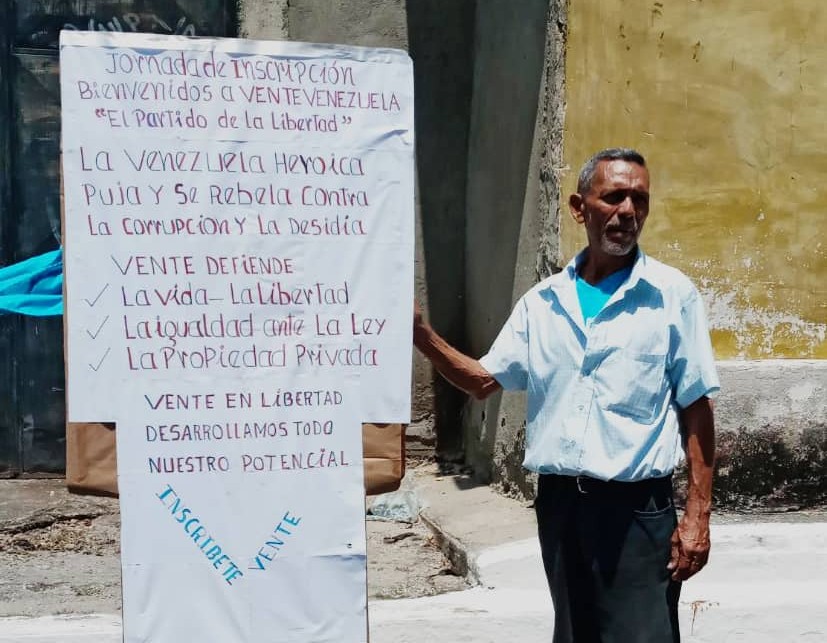 Jornada de Inscripción
Bienvenidos a VENTE VENEZUELA
"El Partido de la Libertad"
La Venezuela Heroica
Puja Y Se Rebela Contra
La Corrupcion Y La Desidia
VENTE DEFIENDE
✓ La vida - La Libertad
✓ La igualdad ante La Ley
✓ La Propiedad Privada
VENTE EN LIBERTAD
DESARROLLAMOS TODO
NUESTRO POTENCIAL
INSCRIBETE
VENTE